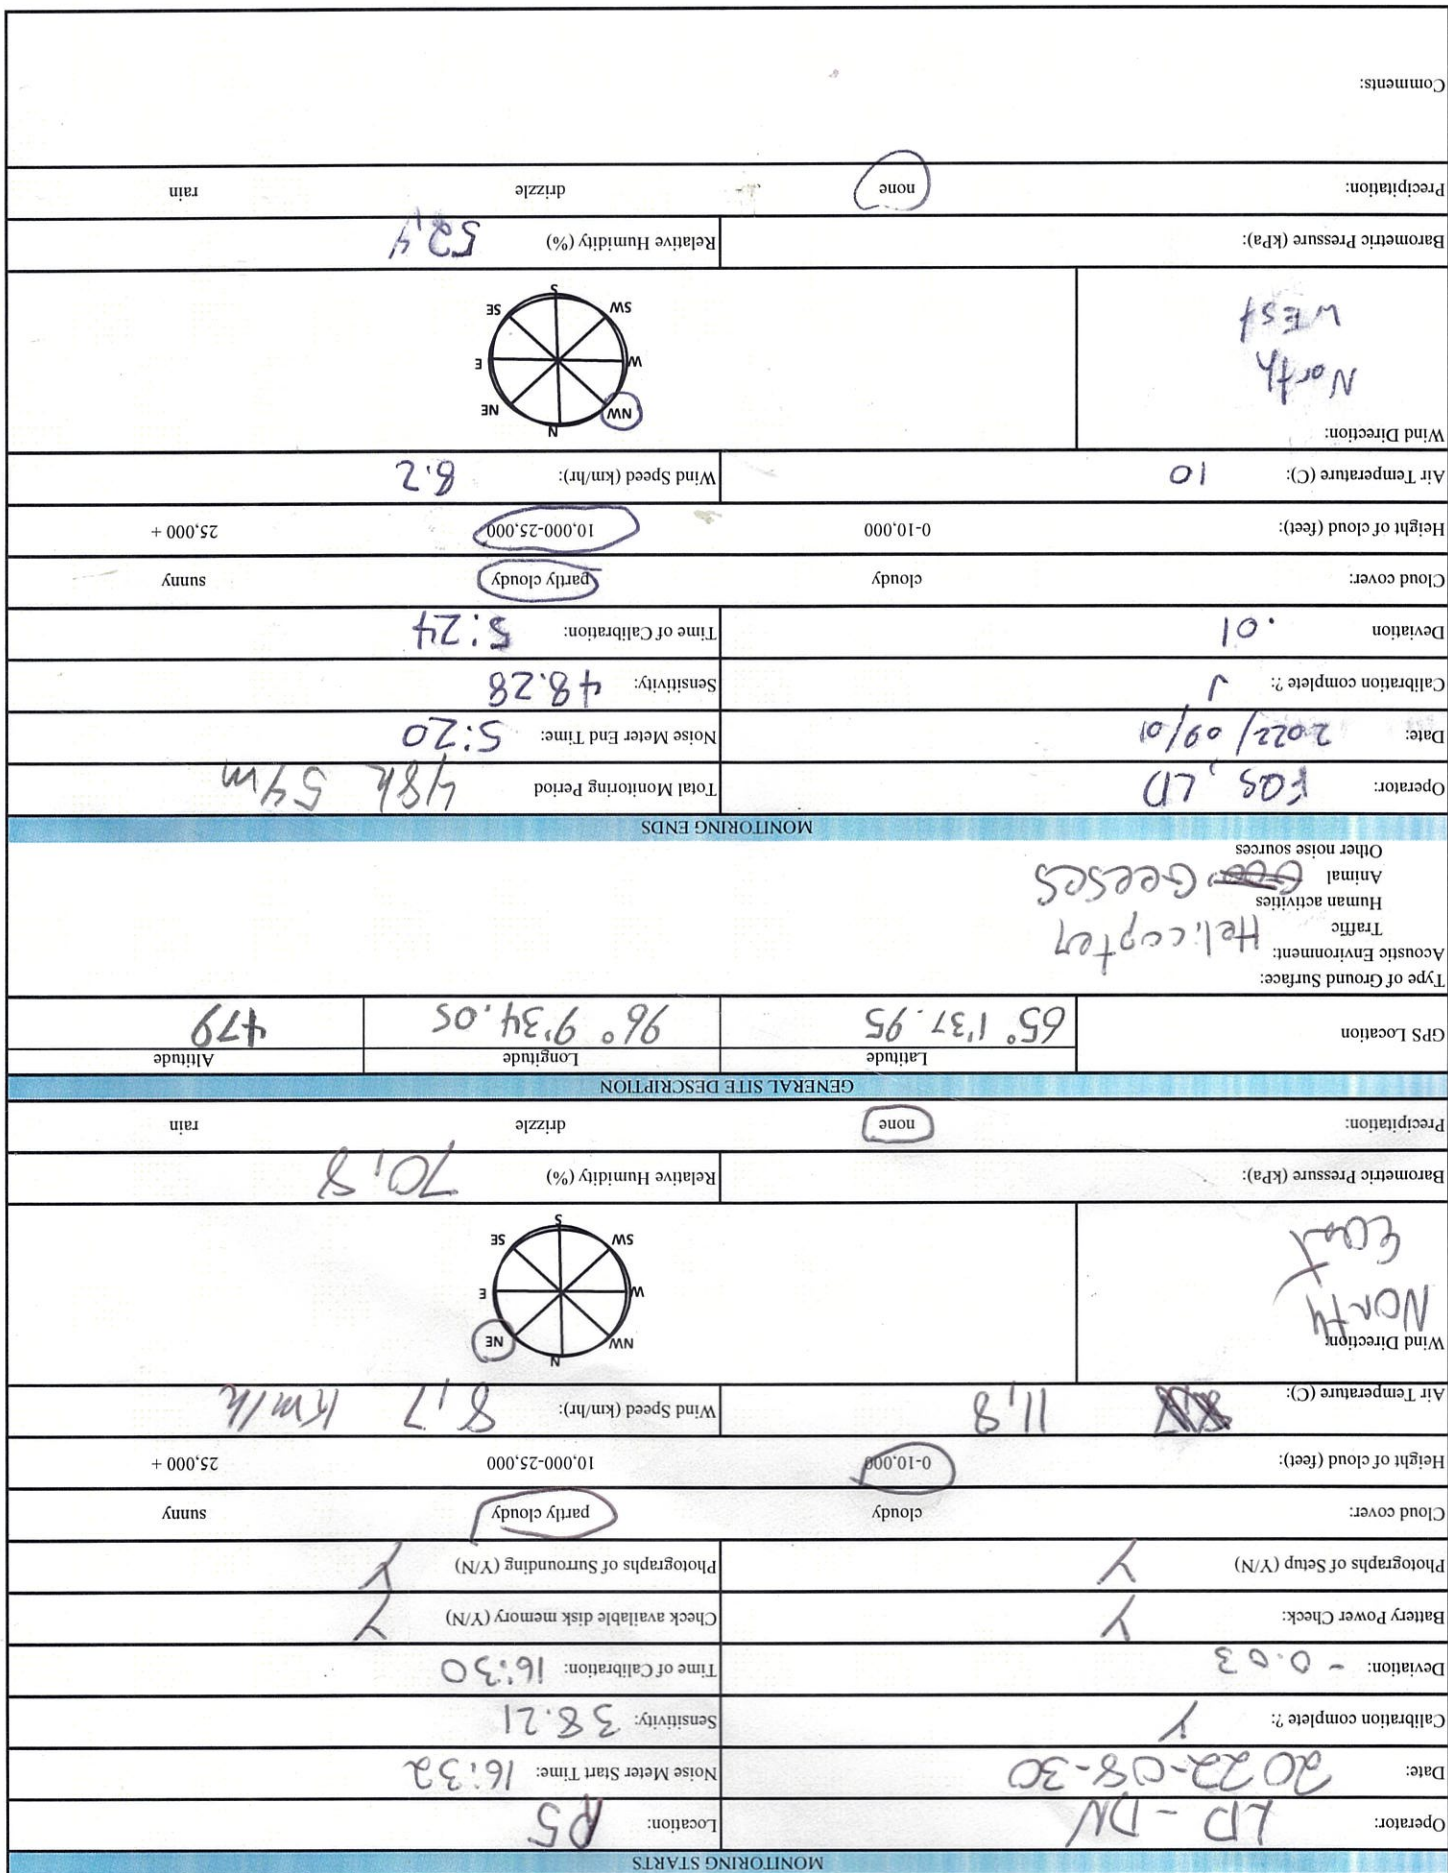 MONITORING STARTS
Operator: LD - DN Location: R5
Date: 2022-08-30 Noise Meter Start Time: 16:32
Calibration complete ?: Y Sensitivity: 38.21
Deviation: - 0.03 Time of Calibration: 16:30
Battery Power Check: Y Check available disk memory (Y/N) Y
Photographs of Setup (Y/N) Y Photographs of Surrounding (Y/N) Y
Cloud cover: cloudy partly cloudy sunny
Height of cloud (feet): 0-10,000 10,000-25,000 25,000 +
Air Temperature (C): 11,8 Wind Speed (km/hr): 8,7 Km/h
Wind Direction:
North
East
N
NW NE
W E
SW SE
S
Barometric Pressure (kPa): Relative Humidity (%) 70,8
Precipitation: none drizzle rain
GENERAL SITE DESCRIPTION
Latitude Longitude Altitude
GPS Location 65° 1'37.95 96° 9'34.05 479
Type of Ground Surface:
Acoustic Environment:
Traffic Helicopter
Human activities
Animal Geeses
Other noise sources
MONITORING ENDS
Operator: FQS, LD Total Monitoring Period 48h 54m
Date: 2022/09/01 Noise Meter End Time: 5:20
Calibration complete ?: √ Sensitivity: 48.28
Deviation .01 Time of Calibration: 5:24
Cloud cover: cloudy partly cloudy sunny
Height of cloud (feet): 0-10,000 10,000-25,000 25,000 +
Air Temperature (C): 10 Wind Speed (km/hr): 8.2
Wind Direction:
North
WEST
N
NW NE
W E
SW SE
S
Barometric Pressure (kPa): Relative Humidity (%) 52,4
Precipitation: none drizzle rain
Comments: